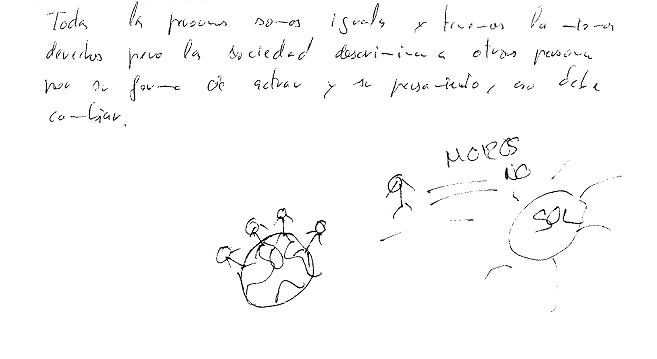 Todas las personas somos iguales y tenemos los mismos
derechos pero la sociedad descrimina a otras personas
por su forma de actuar y su pensamiento, eso debe
cambiar.
MOROS
NO
SOL